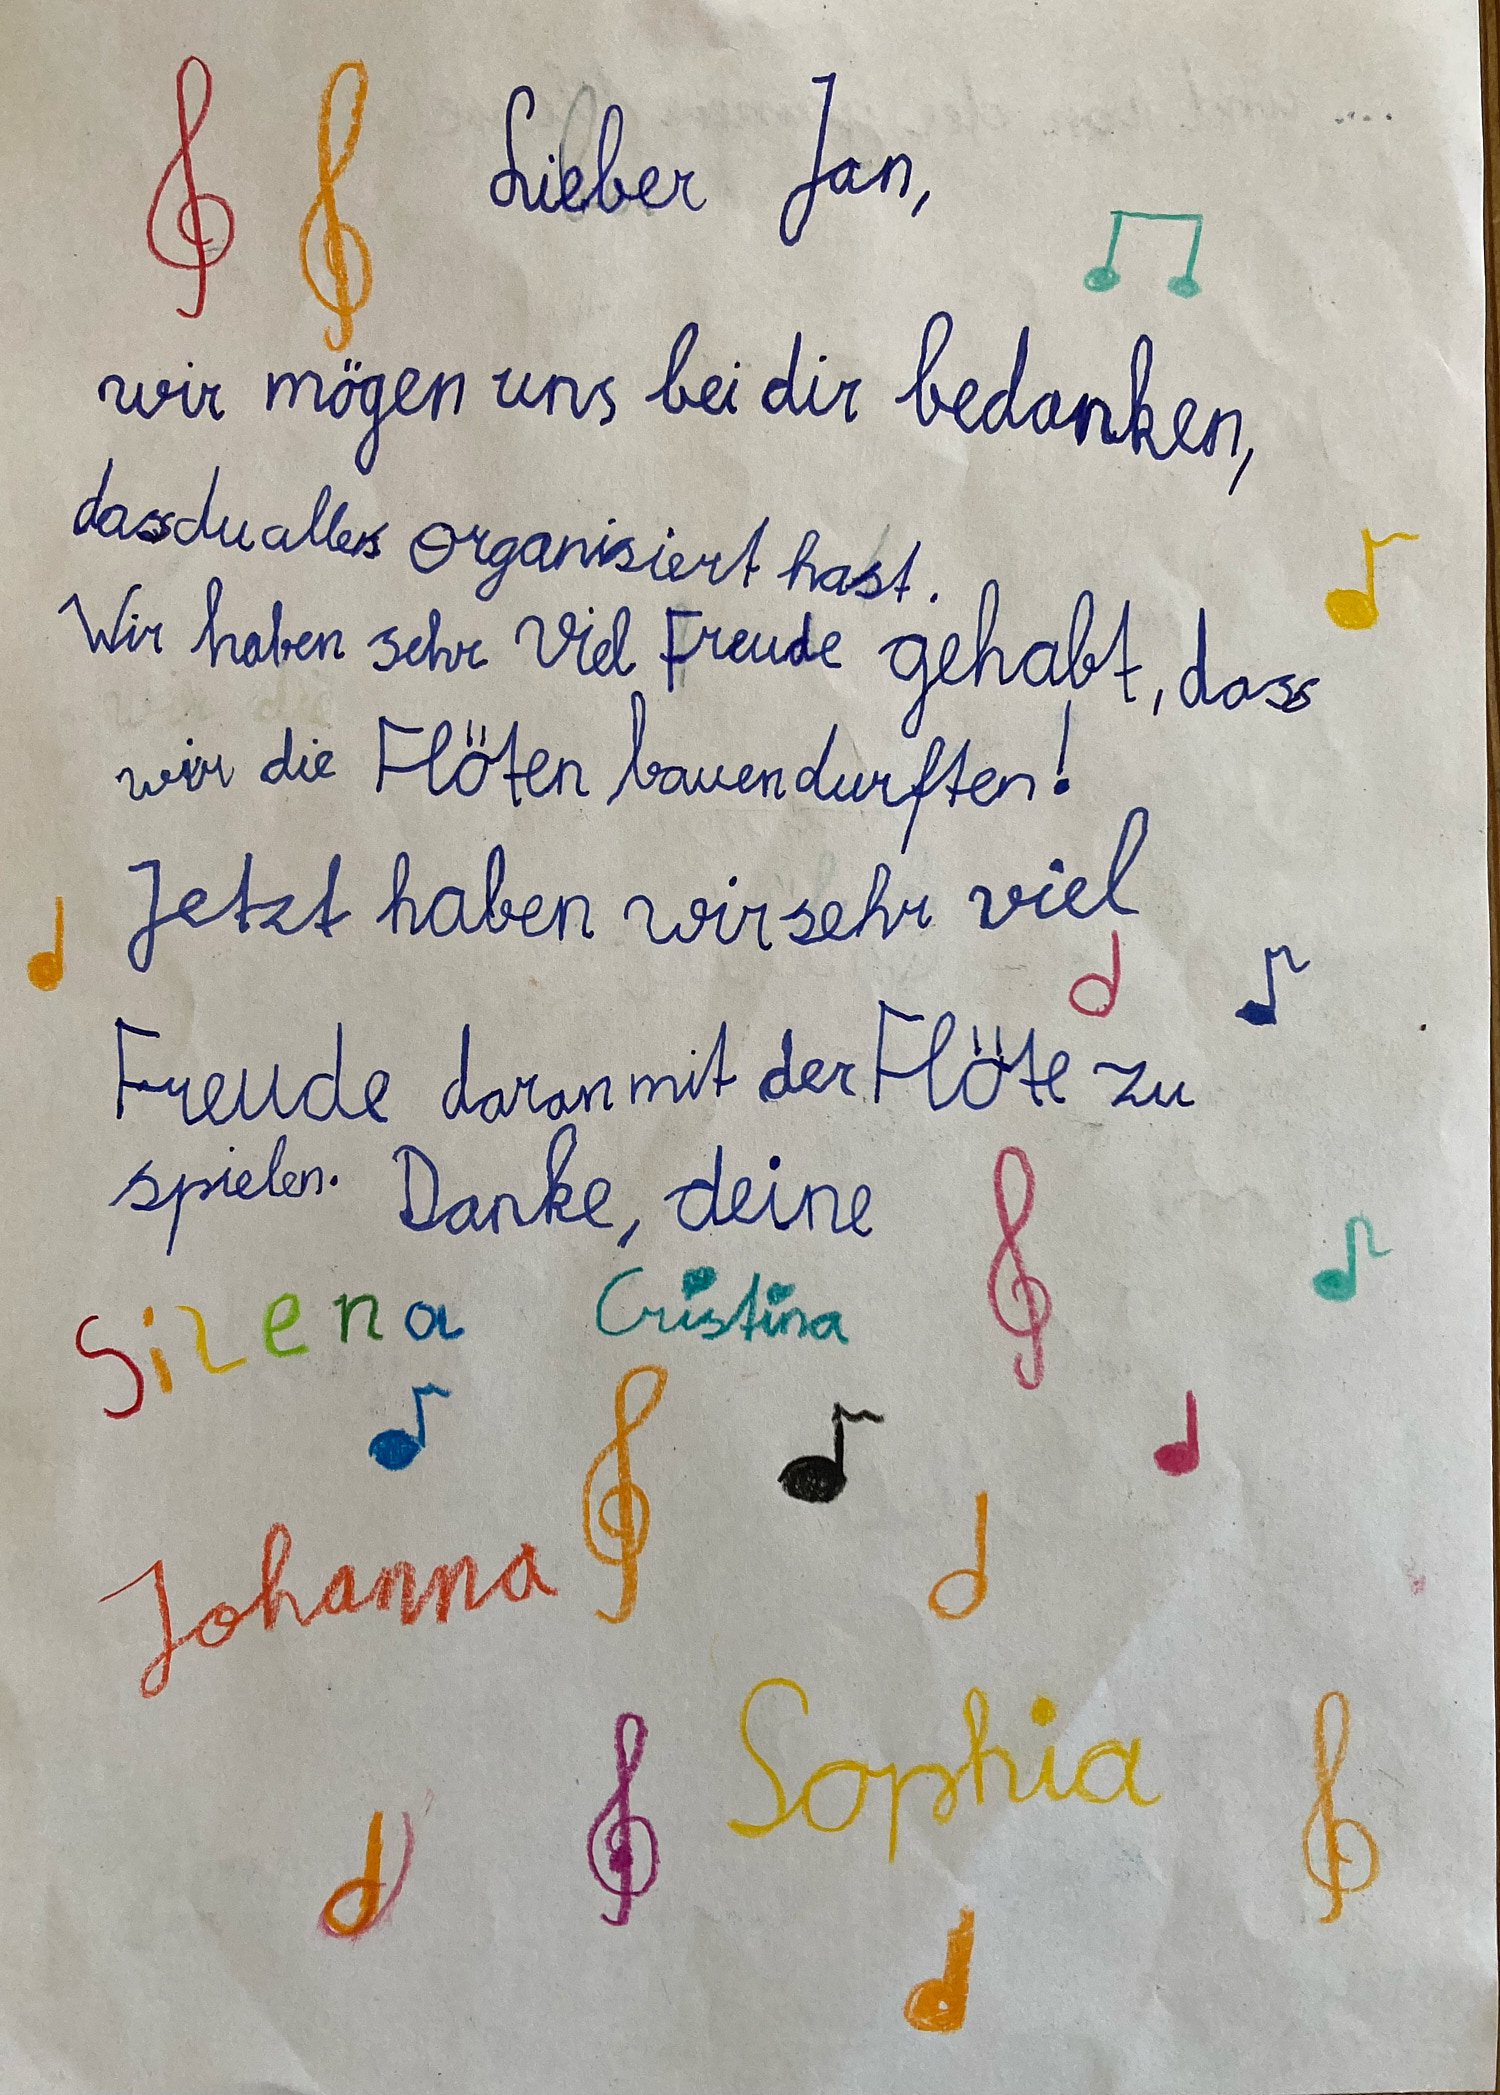 Lieber Jan,
wir mögen uns bei dir bedanken,
dass du alles organisiert hast.
Wir haben sehr Viel Freude gehabt, dass
wir die Flöten bauen durften!
Jetzt haben wir sehr viel
Freude daran mit der Flöte zu
spielen. Danke, deine
Sirena Cristina
Johanna
Sophia